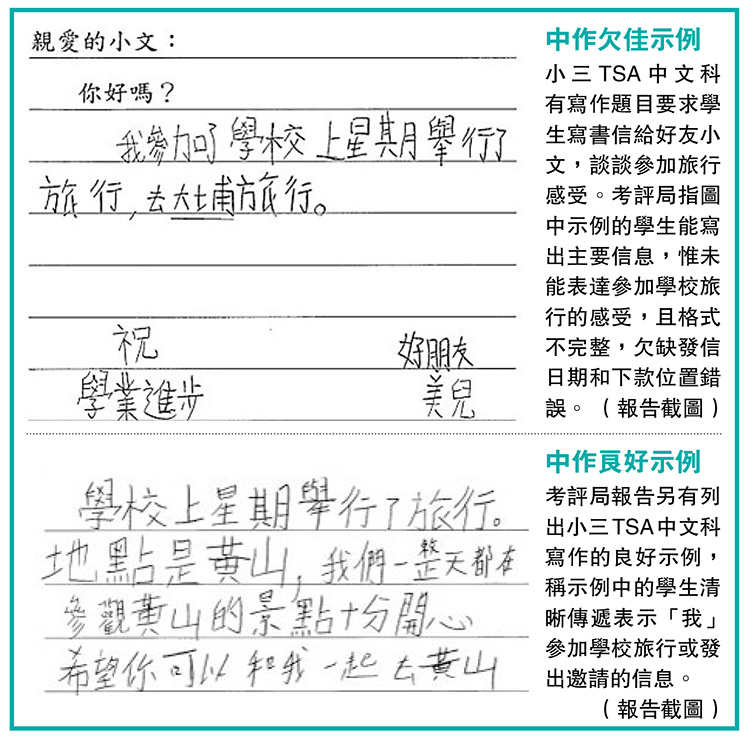 親愛的小文：
你好嗎？
我參加了學校上星期舉行了
旅行，去大埔旅行。
祝
好朋友
學業進步
美兒
中作欠佳示例
小三TSA中文科
有寫作題目要求學
生寫書信給好友小
文，談談參加旅行
感受。考評局指圖
中示例的學生能寫
出主要信息，惟未
能表達參加學校旅
行的感受，且格式
不完整，欠缺發信
日期和下款位置錯
誤。（報告截圖）
學校上星期舉行了旅行。
地點是黃山，我們一整天都在
參觀黃山的景點十分開心
希望你可以和我一起去黃山
中作良好示例
考評局報告另有列
出小三TSA中文科
寫作的良好示例，
稱示例中的學生清
晰傳遞表示「我」
參加學校旅行或發
出邀請的信息。
（報告截圖）